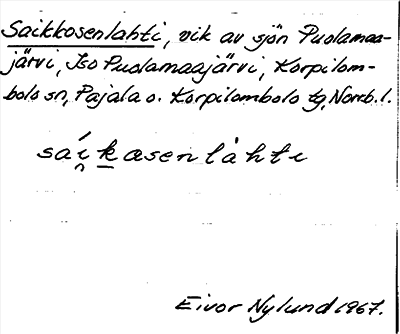 Saikkosenlahti, vik av sjön Puolamaa-
järvi, Iso Puolamaajärvi, Korpilom-
bolo sn, Pajala o. Korpilombolo tg, Norrb. l.
sái̯k̲asenlahti
Eivor Nylund 1967.